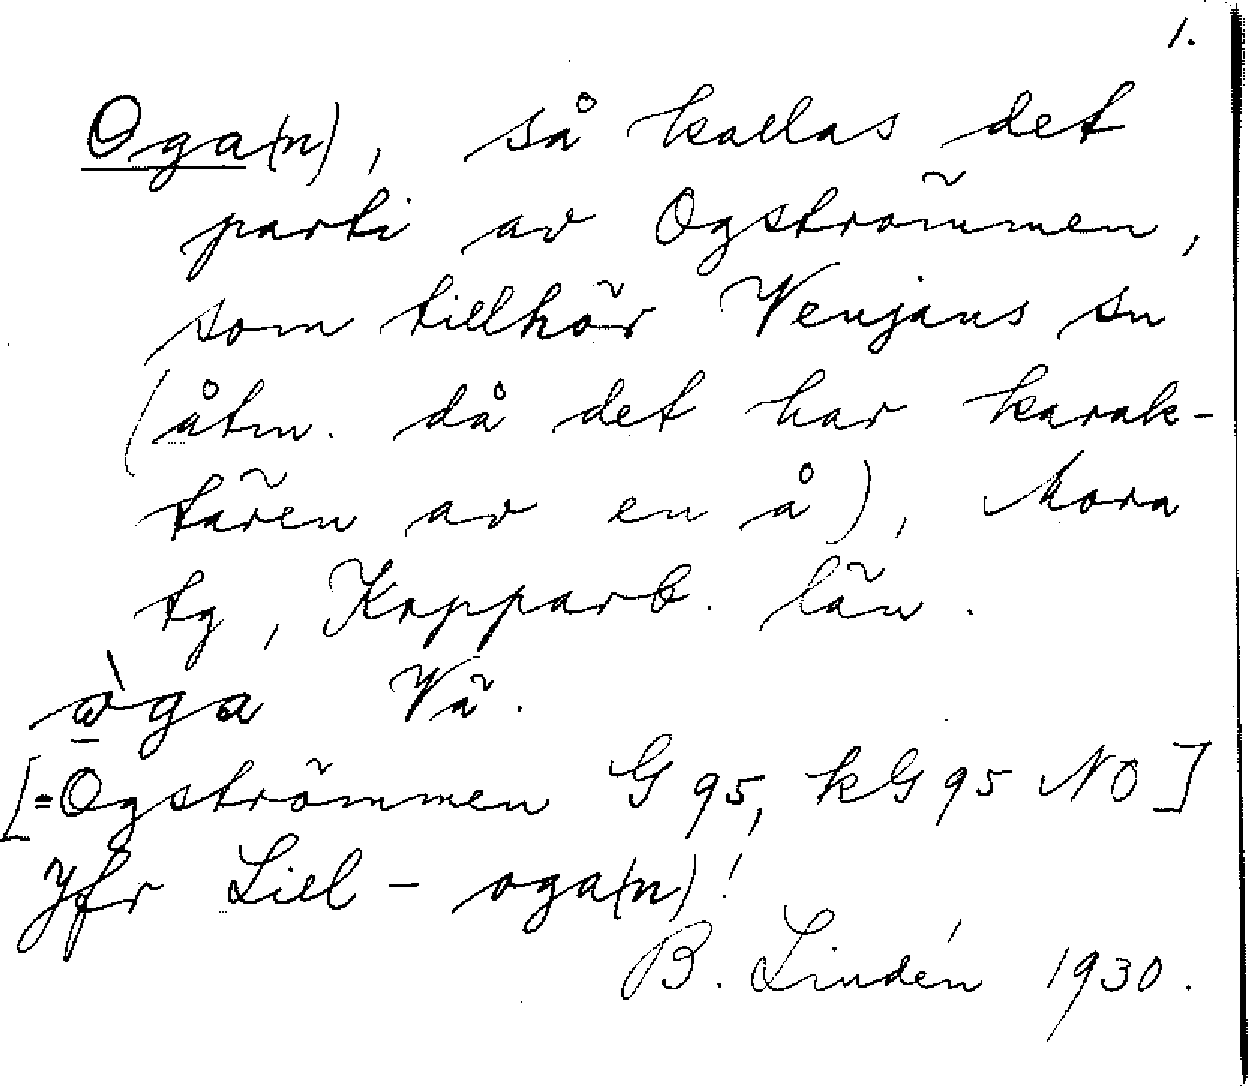 1.
Oga(n), så kallas det
parti av Ogströmmen,
som tillhör Venjans sn
(åtm. då det har karak-
tären av en å), Mora
tg, Kopparb. län.
ò̱ga Vä.
[=Ogströmmen G 95, kG 95 NO]
Jfr Lill-oga(n)!
B. Lindén 1930.